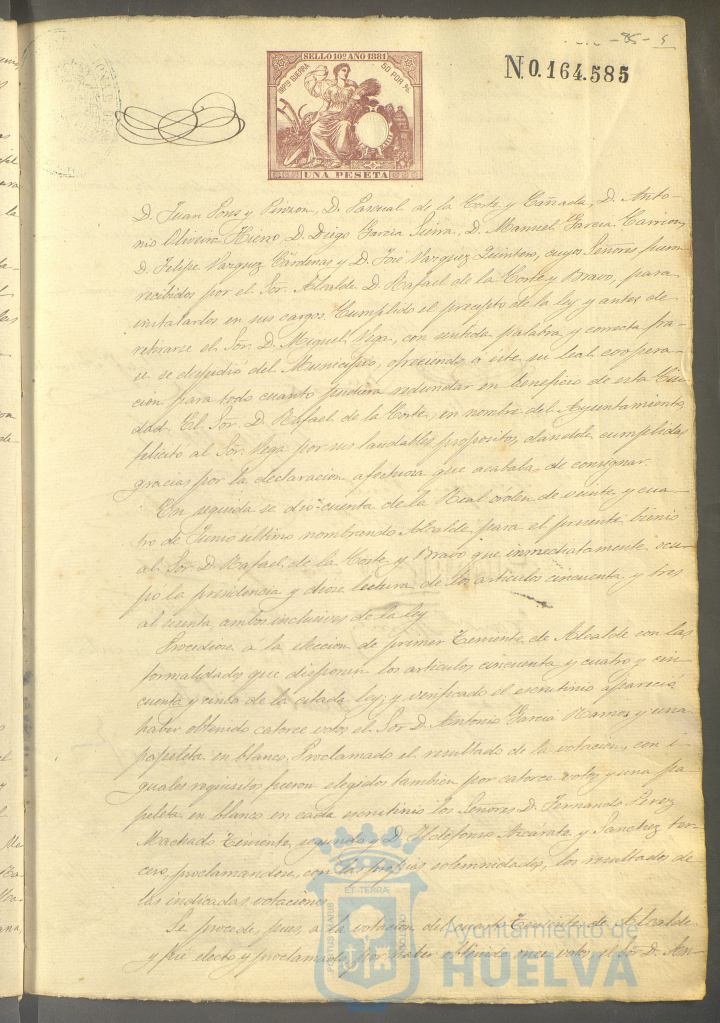 - 85 - 5
SELLO 10º AÑO 1881
IMPº GUERRA
50 POR %
UNA PESETA
N0.164.585
D. Juan Pons y Pinzon, D. Pascual de la Corte y Cañada, D. Anto-
nio Oliveira Hierro, D. Diego Garcia Sierra, D. Manuel Garcia Carrion,
D. Felipe Vazquez Cárdenas y D. José Vazquez Quintero, cuyos Señores fueron
recibidos por el Sor. Alcalde D. Rafael de la Corte y Bravo, para
instalarlos en sus cargos. Cumplido el precepto de la ley y antes de
retirarse el Sor. D. Miguel Vega, con sentida palabra y correcta fra-
se se despidió del Municipio, ofreciendo á este su leal coopera-
cion para todo cuanto pudiera redundar en beneficio de esta Ciu-
dad. El Sor. D. Rafael de la Corte, en nombre del Ayuntamiento,
felicitó al Sor. Vega por sus laudables propositos, dandole cumplidas
gracias por la declaracion afectuosa que acababa de consignar.
En seguida se dió cuenta de la Real órden de veinte y cua-
tro de Junio último nombrando Alcalde para el presente bienio
al Sor. D. Rafael de la Corte y Bravo que inmediatamente ocu-
pó la presidencia y diose lectura de los articulos cincuenta y tres
al cuenta ambos inclusives de la ley.
Procediose á la eleccion de primer Teniente de Alcalde con las
formalidades que disponen los articulos cincuenta y cuatro y cin-
cuenta y cinco de la citada ley; y verificado el escrutinio apareció
haber obtenido catorce votos el Sor. D. Antonio Garcia Ramos y una
papeleta en blanco. Proclamado el resultado de la votacion, con i-
guales requisitos fueron elegidos tambien por catorce votos y una pa-
peleta en blanco en cada escrutinio los Señores D. Fernando Perez
Machado Teniente segundo y D. Ildefonso Azcarate y Sanchez ter-
cero, proclamandose, con las propias solemnidades, los resultados de
las indicadas votaciones.
Se procede, pues, á la votacion de cuarto Teniente de Alcalde
y fué electo y proclamado por haber obtenido once votos, el Sor. D. An-
PORTUS MARIS
ET TERRA
CUSTODIA
Ayuntamiento de
HUELVA